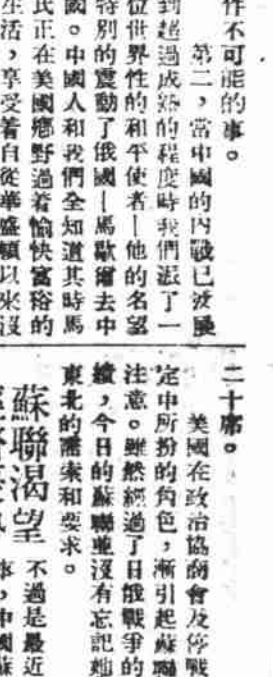 件不可能的事。
第二，當中國的內戰已發展
到超過成熟的程度時我們派了一
位世界性的和平使者—他的名望
特別的震動了俄國—馬歇爾去中
國。中國人和我們全知道其時馬
氏正在美國鄉野過着愉快富裕的
生活，享受着自從華盛頓以來沒
二十席。
美國在政治協商會及停戰
定中所扮的角色，漸引起蘇聯
注意。雖然經過了日俄戰爭的
績，今日的蘇聯並沒有忘記她
東北的需索和要求。
蘇聯渴望
不過是最近
事，中國蘇